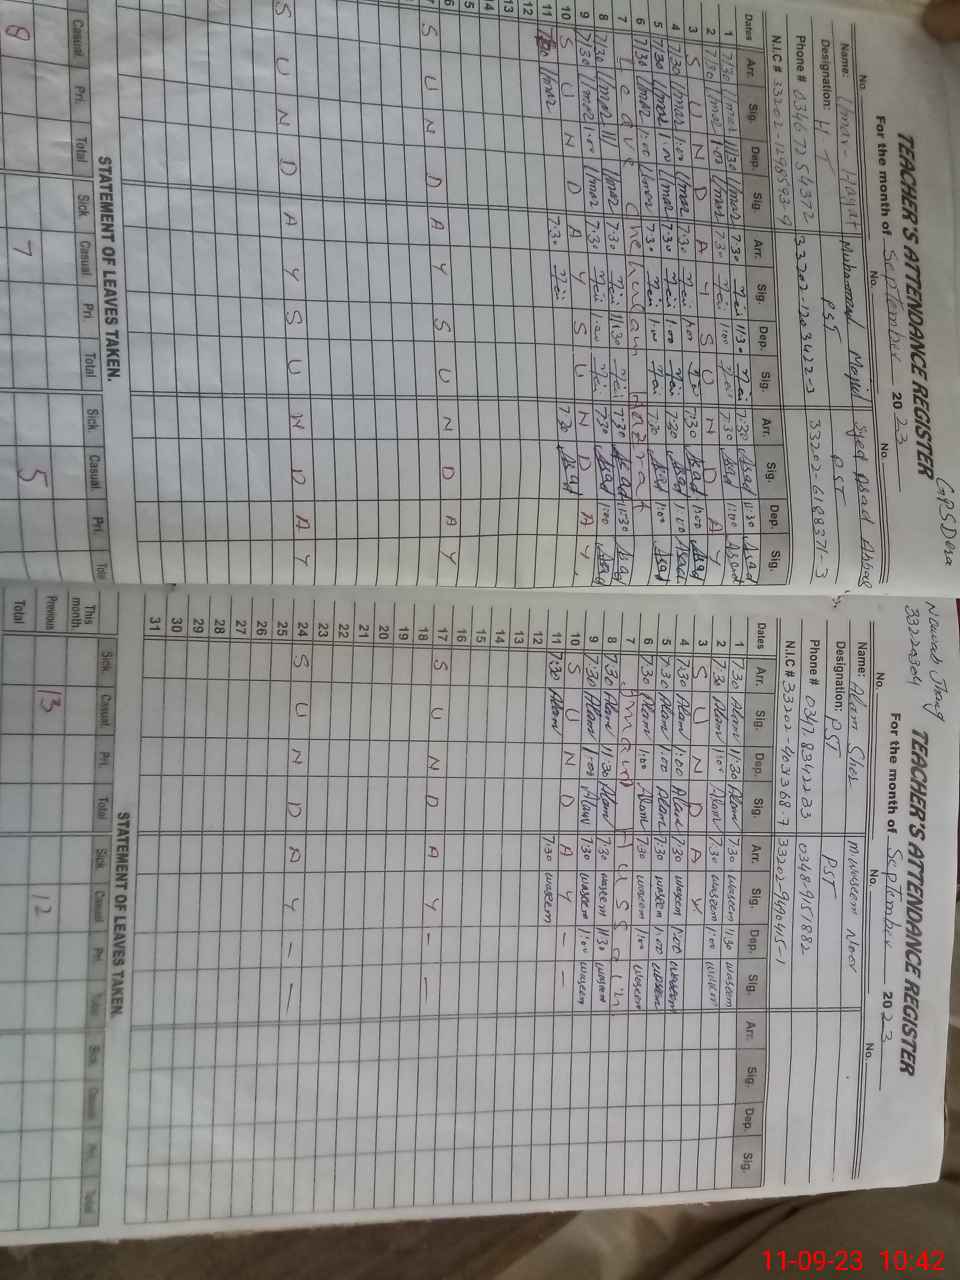 GPS Dera
TEACHER'S ATTENDANCE REGISTER
For the month of September 2023
No. No. No.
Name: Umar Hayat Muhammad Majid Syed Asad Abbas
Designation: H.T PST PST
Phone # 0346-7254372
N.I.C # 33202-1203422-3 33202-6188371-3
Dates Arr. Sig. Dep. Sig. Arr. Sig. Dep. Sig. Arr. Sig. Dep. Sig.
1 7:30 Umar 11:30 Umar 7:30 11:30 7:30 Asad 11:30 Asad
2 7:30 Umar 1:00 Umar 7:30 1:00 7:30 Asad 1:00 Asad
3 S U N D A Y S U N D A Y
4 7:30 Umar 1:00 Umar 7:30 1:00 7:30 Asad 1:00 Asad
5 7:30 Umar 1:00 Umar 7:30 1:00 7:30 Asad 1:00 Asad
6 7:30 Umar 1:00 Umar 7:30 1:00 7:30 Asad 1:00 Asad
7 Leave Chehulam Hazrat
8 7:30 Umar Umar 7:30 11:30 7:30 Asad 11:30 Asad
9 7:30 Umar 1:00 Umar 7:30 1:00 7:30 Asad 1:00 Asad
10 S U N D A Y S U N D A Y
11 Umar 7:30 7:30 Asad
12
13
14
15
S U N D A Y S U N D A Y
S U N D A Y S U N D A Y
STATEMENT OF LEAVES TAKEN.
Casual. Pri. Total Sick. Casual. Pri. Total Sick. Casual. Pri. Total
8 7 5
33222304
TEACHER'S ATTENDANCE REGISTER
For the month of September 2023
No. No. No.
Name: Alam Sher M Waseem Noor
Designation: PST PST
Phone # 0347-8342233 0348-9151882
N.I.C # 33202-9490415-1
Dates Arr. Sig. Dep. Sig. Arr. Sig. Dep. Sig. Arr. Sig. Dep. Sig.
1 7:30 Alam 11:30 Alam 7:30 waseem 11:30 waseem
2 7:30 Alam 1:00 Alam 7:30 waseem 1:00 waseem
3 S U N D A Y
4 7:30 Alam 1:00 Alam 7:30 waseem 1:00 waseem
5 7:30 Alam 1:00 Alam 7:30 waseem 1:00 waseem
6 7:30 Alam 1:00 Alam 7:30 waseem 1:00 waseem
7 Imam Hussain
8 7:30 Alam 11:30 Alam 7:30 waseem 11:30 waseem
9 7:30 Alam 1:00 Alam 7:30 waseem 1:00 waseem
10 S U N D A Y – –
11 7:30 Alam 7:30 waseem
12
13
14
15
16
17 S U N D A Y – –
18
19
20
21
22
23
24 S U N D A Y – –
25
26
27
28
29
30
31
STATEMENT OF LEAVES TAKEN.
This month. Sick. Casual. Pri. Total Sick. Casual. Pri. Total Sick. Casual. Pri. Total
Previous 13 12
Total
11-09-23 10:42